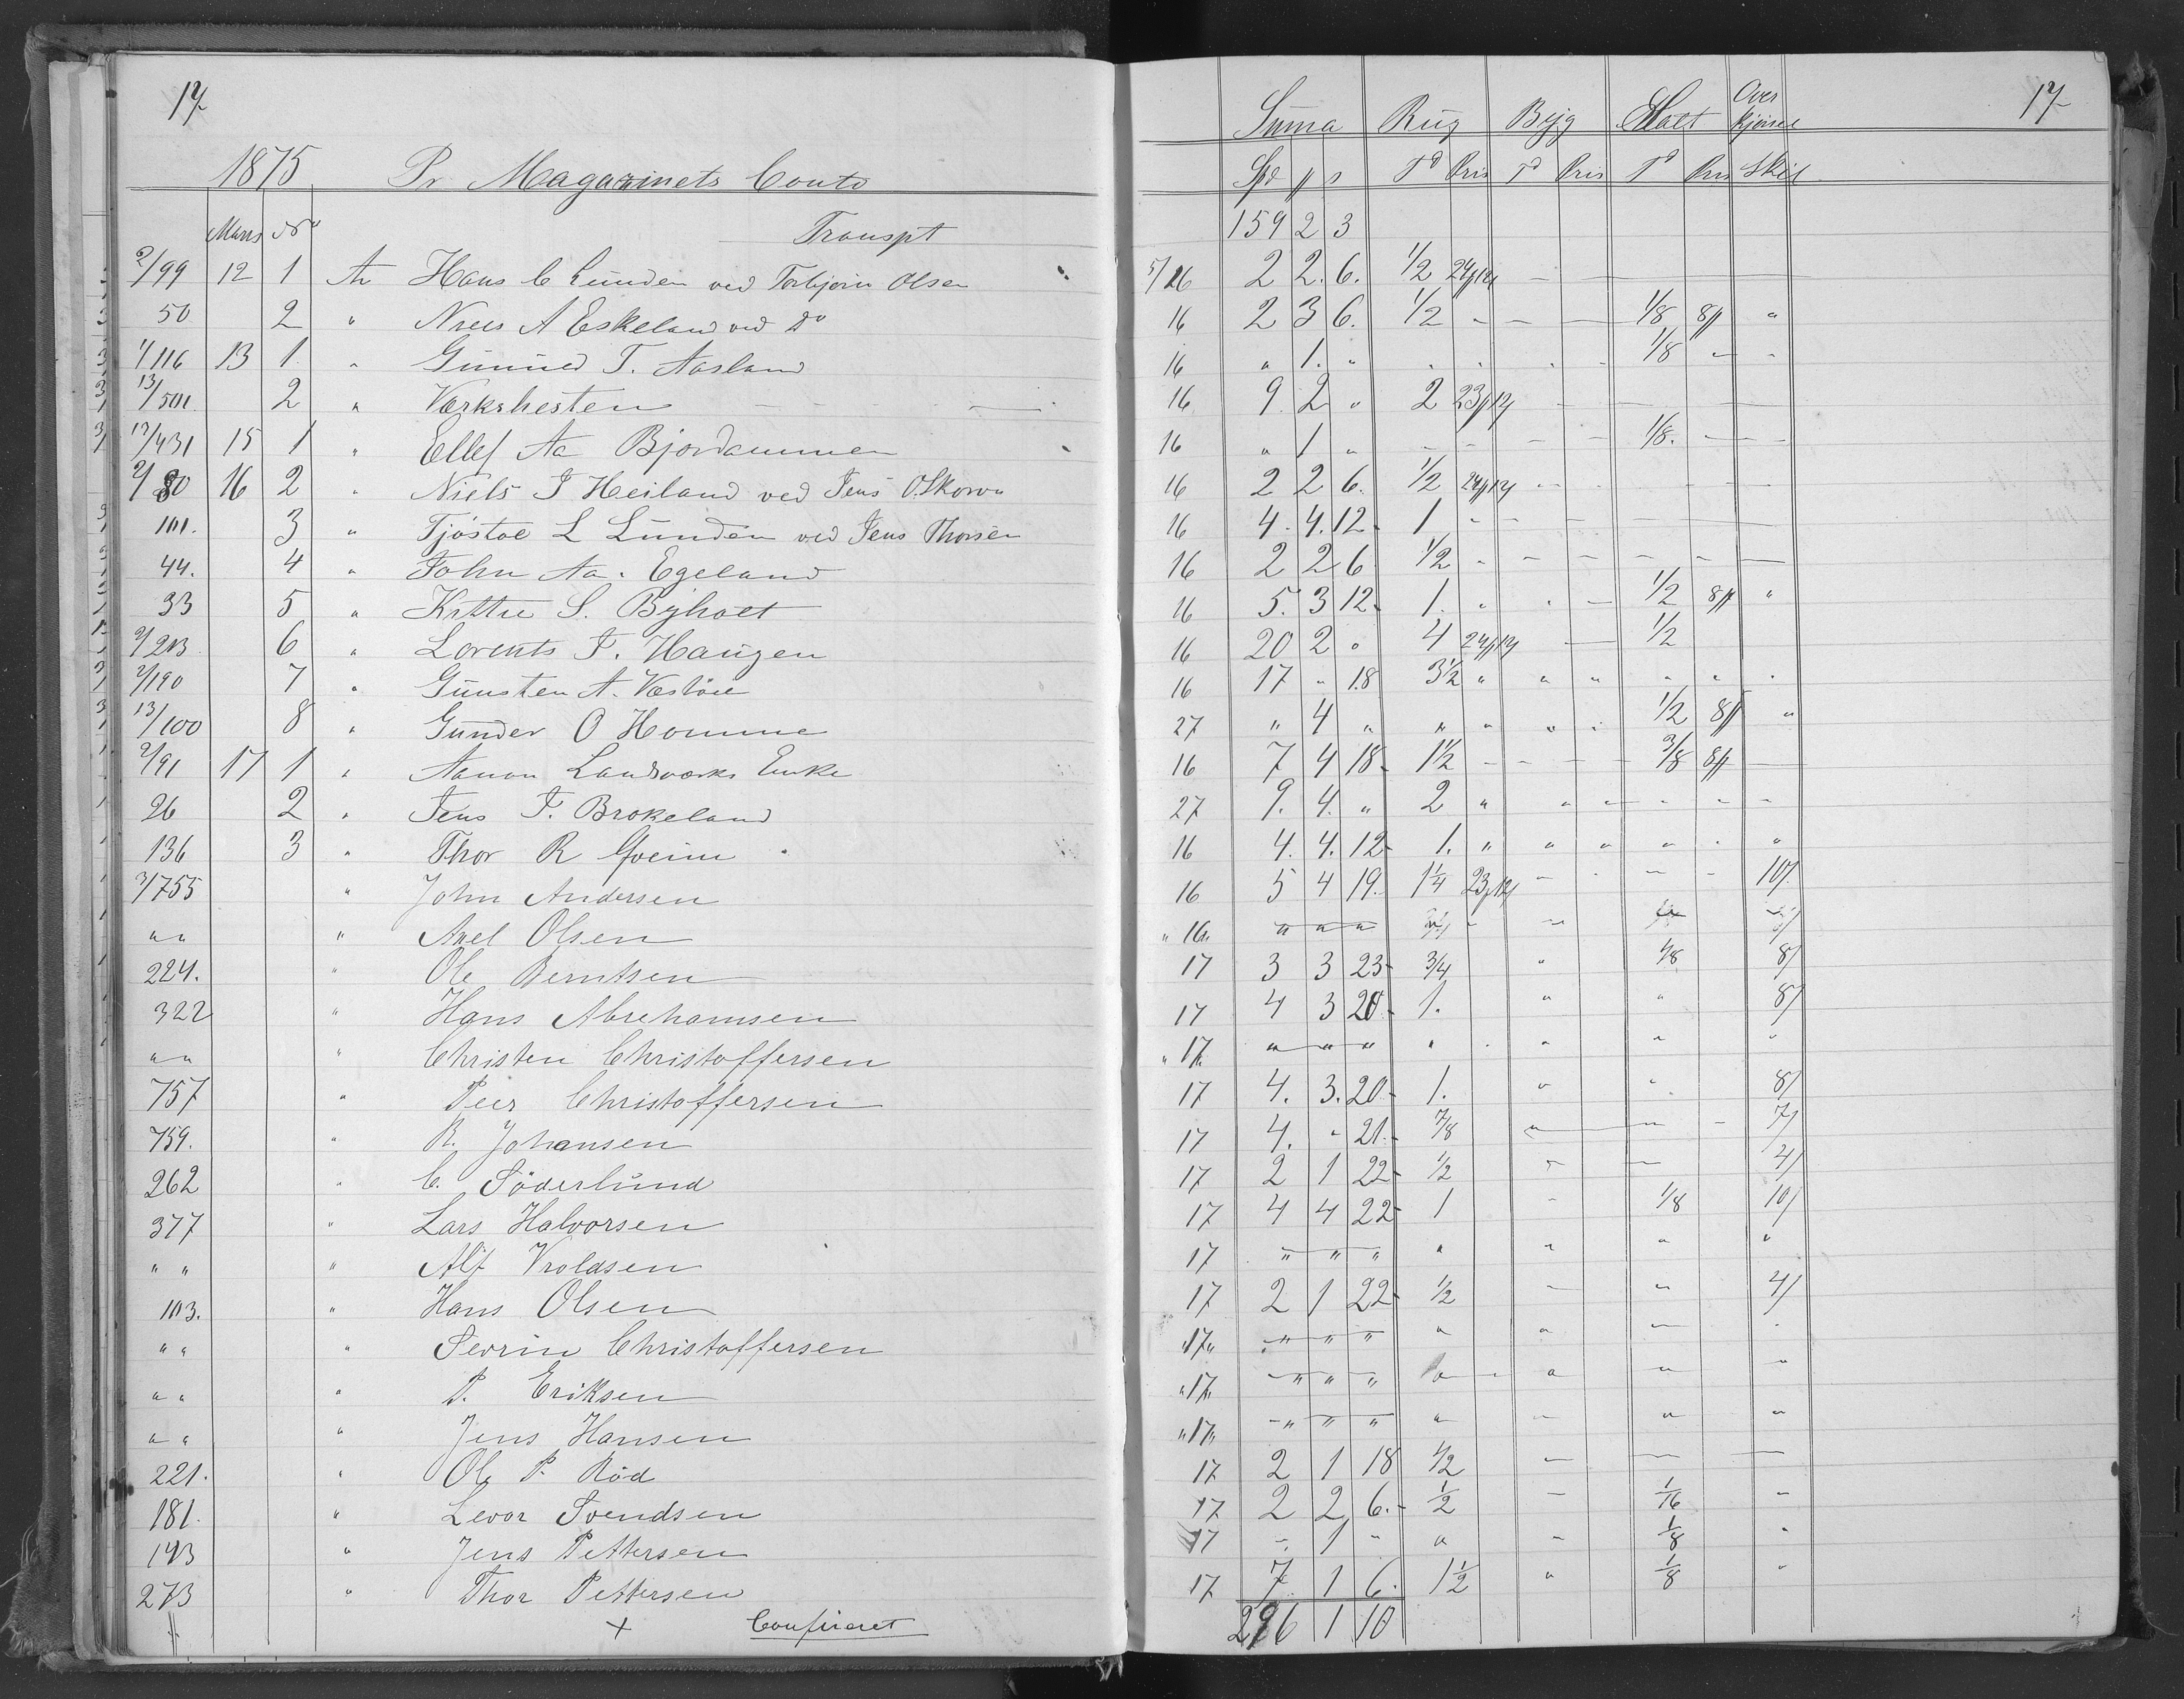 17
1875 Pr Magazinets Conto
Marts No Transpt
2/99 12 1 An Hans C Lunden ved Torbjörn Olsen
50 2 " Niels A Eskeland ved do
1/116 13 1 " Gunuld T. Aasland
13/501 2 " Værkshesten
12/431 15 1 " Ellef Aa Bjordammen
2/80 16 2 " Niels J Heiland ved Jens O. Skorva
101. 3 " Tjöstol L Lunden ved Jens Thorsen
44. 4 " John Aa. Egeland
33 5 " Kittil S. Byholt
2/213 6 " Lorents J. Haugen
2/190 7 " Gunsten A. Vestöel
13/100 8 " Gunder O Homme
2/91 17 1 " Aanon Landværks Enke
26 2 " Jens J. Brokeland
136 3 " Thor R Goeim
3/755 " John Andersen
" " " Axel Olsen
224. " Ole Berntsen
322 " Hans Abrehamsen
" " " Christen Christoffersen
757 " Peer Christoffersen
759. " R. Johansen
262 " C. Söderlund
377 " Lars Halvorsen
" " " Alf Vroldsen
103. " Hans Olsen
" " " Sevrin Christoffersen
" " " P. Eriksen
" " " Jens Hansen
221. " Ole P. Röd
181. " Levor Svendsen
143 " Jens Pettersen
273 " Thor Pettersen
+ Confereret
17
Suma Rug Byg Malt Over kjörsel
Spd ß s Td Pris Td Pris Td Pris Skil
159 2 3
5/16 2 2. 6. 1/2 24ß12
16 2 3 6. 1/2 - - - 1/8 8ß "
16 " 1. " . . . . 1/8 - -
16 9. 2 " 2 23ß12 - - -
16 " 1 " - - - - 1/8. - -
16 2 2 6. 1/2 24ß12 - - - - -
16 4. 4. 12 1 - - - -
16 2 2 6 1/2 - - - - - -
16 5. 3 12 1. " . - 1/2 8ß "
16 20 2 " 4 24ß12 - 1/2
16 17 " 18 3 1/2 " " " " " "
27 " 4 " " " " . 1/2 8ß "
16 7 4 18 1 1/2 - - - - 3/8 8ß -
27 9. 4. " 2 " " " - - -
16 4. 4. 12 1. " " " " . "
16 5 4 19. 1 1/4 23ß12 - - - - 10/
" 16 " " " "
17 3 3 23 3/4 " 1/8 8/
17 4 3 20 1. " " 8/
" 17. " " " " . " " "
17 4. 3. 20 1. " " 8/
17 4. " 21. 7/8 " " - 7/
17 2 1 22 1/2 - - 4/
17 4 4 22 1 - 1/8 10/
17 " " " " " " "
17 2 1 22 1/2 - " 4/
" 17 " " " " " " - .
" 17. " " " " - " " "
" 17 " " " " " - " "
17 2 1 18 1/2 - - -
17 2 2 6. 1/2 - 1/16 -
17 " 1 " " - 1/8 "
17 7 1 6. 1 1/2 " 1/8 "
296 1 10